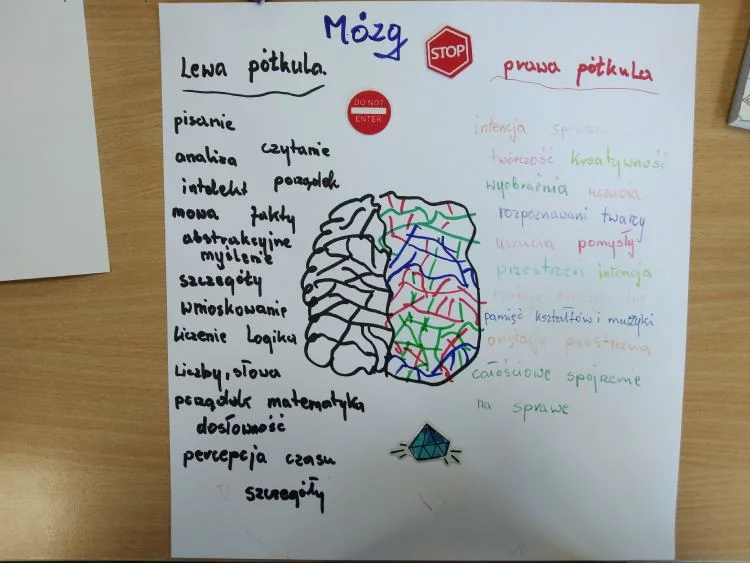 Mózg
STOP
DO NOT
ENTER
Lewa półkula
pisanie
analiza czytanie
intelekt porządek
mowa fakty
abstrakcyjne
myślenie
szczegóły
wnioskowanie
liczenie logika
liczby, słowa
porządek matematyka
dosłowność
percepcja czasu
szczegóły
prawa półkula
intencja
twórczość kreatywność
wyobraźnia uczucia
rozpoznawani twarzy
uczucia pomysły
przestrzeń intencja
pamięć kształtów i muzyki
całościowe spojrzenie
na sprawe